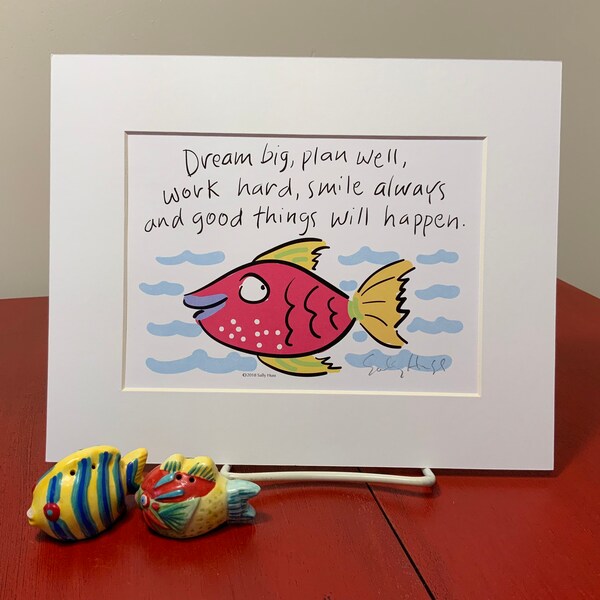 Dream big, plan well,
work hard, smile always
and good things will happen.
©2018 Sally Huss
Sally Huss